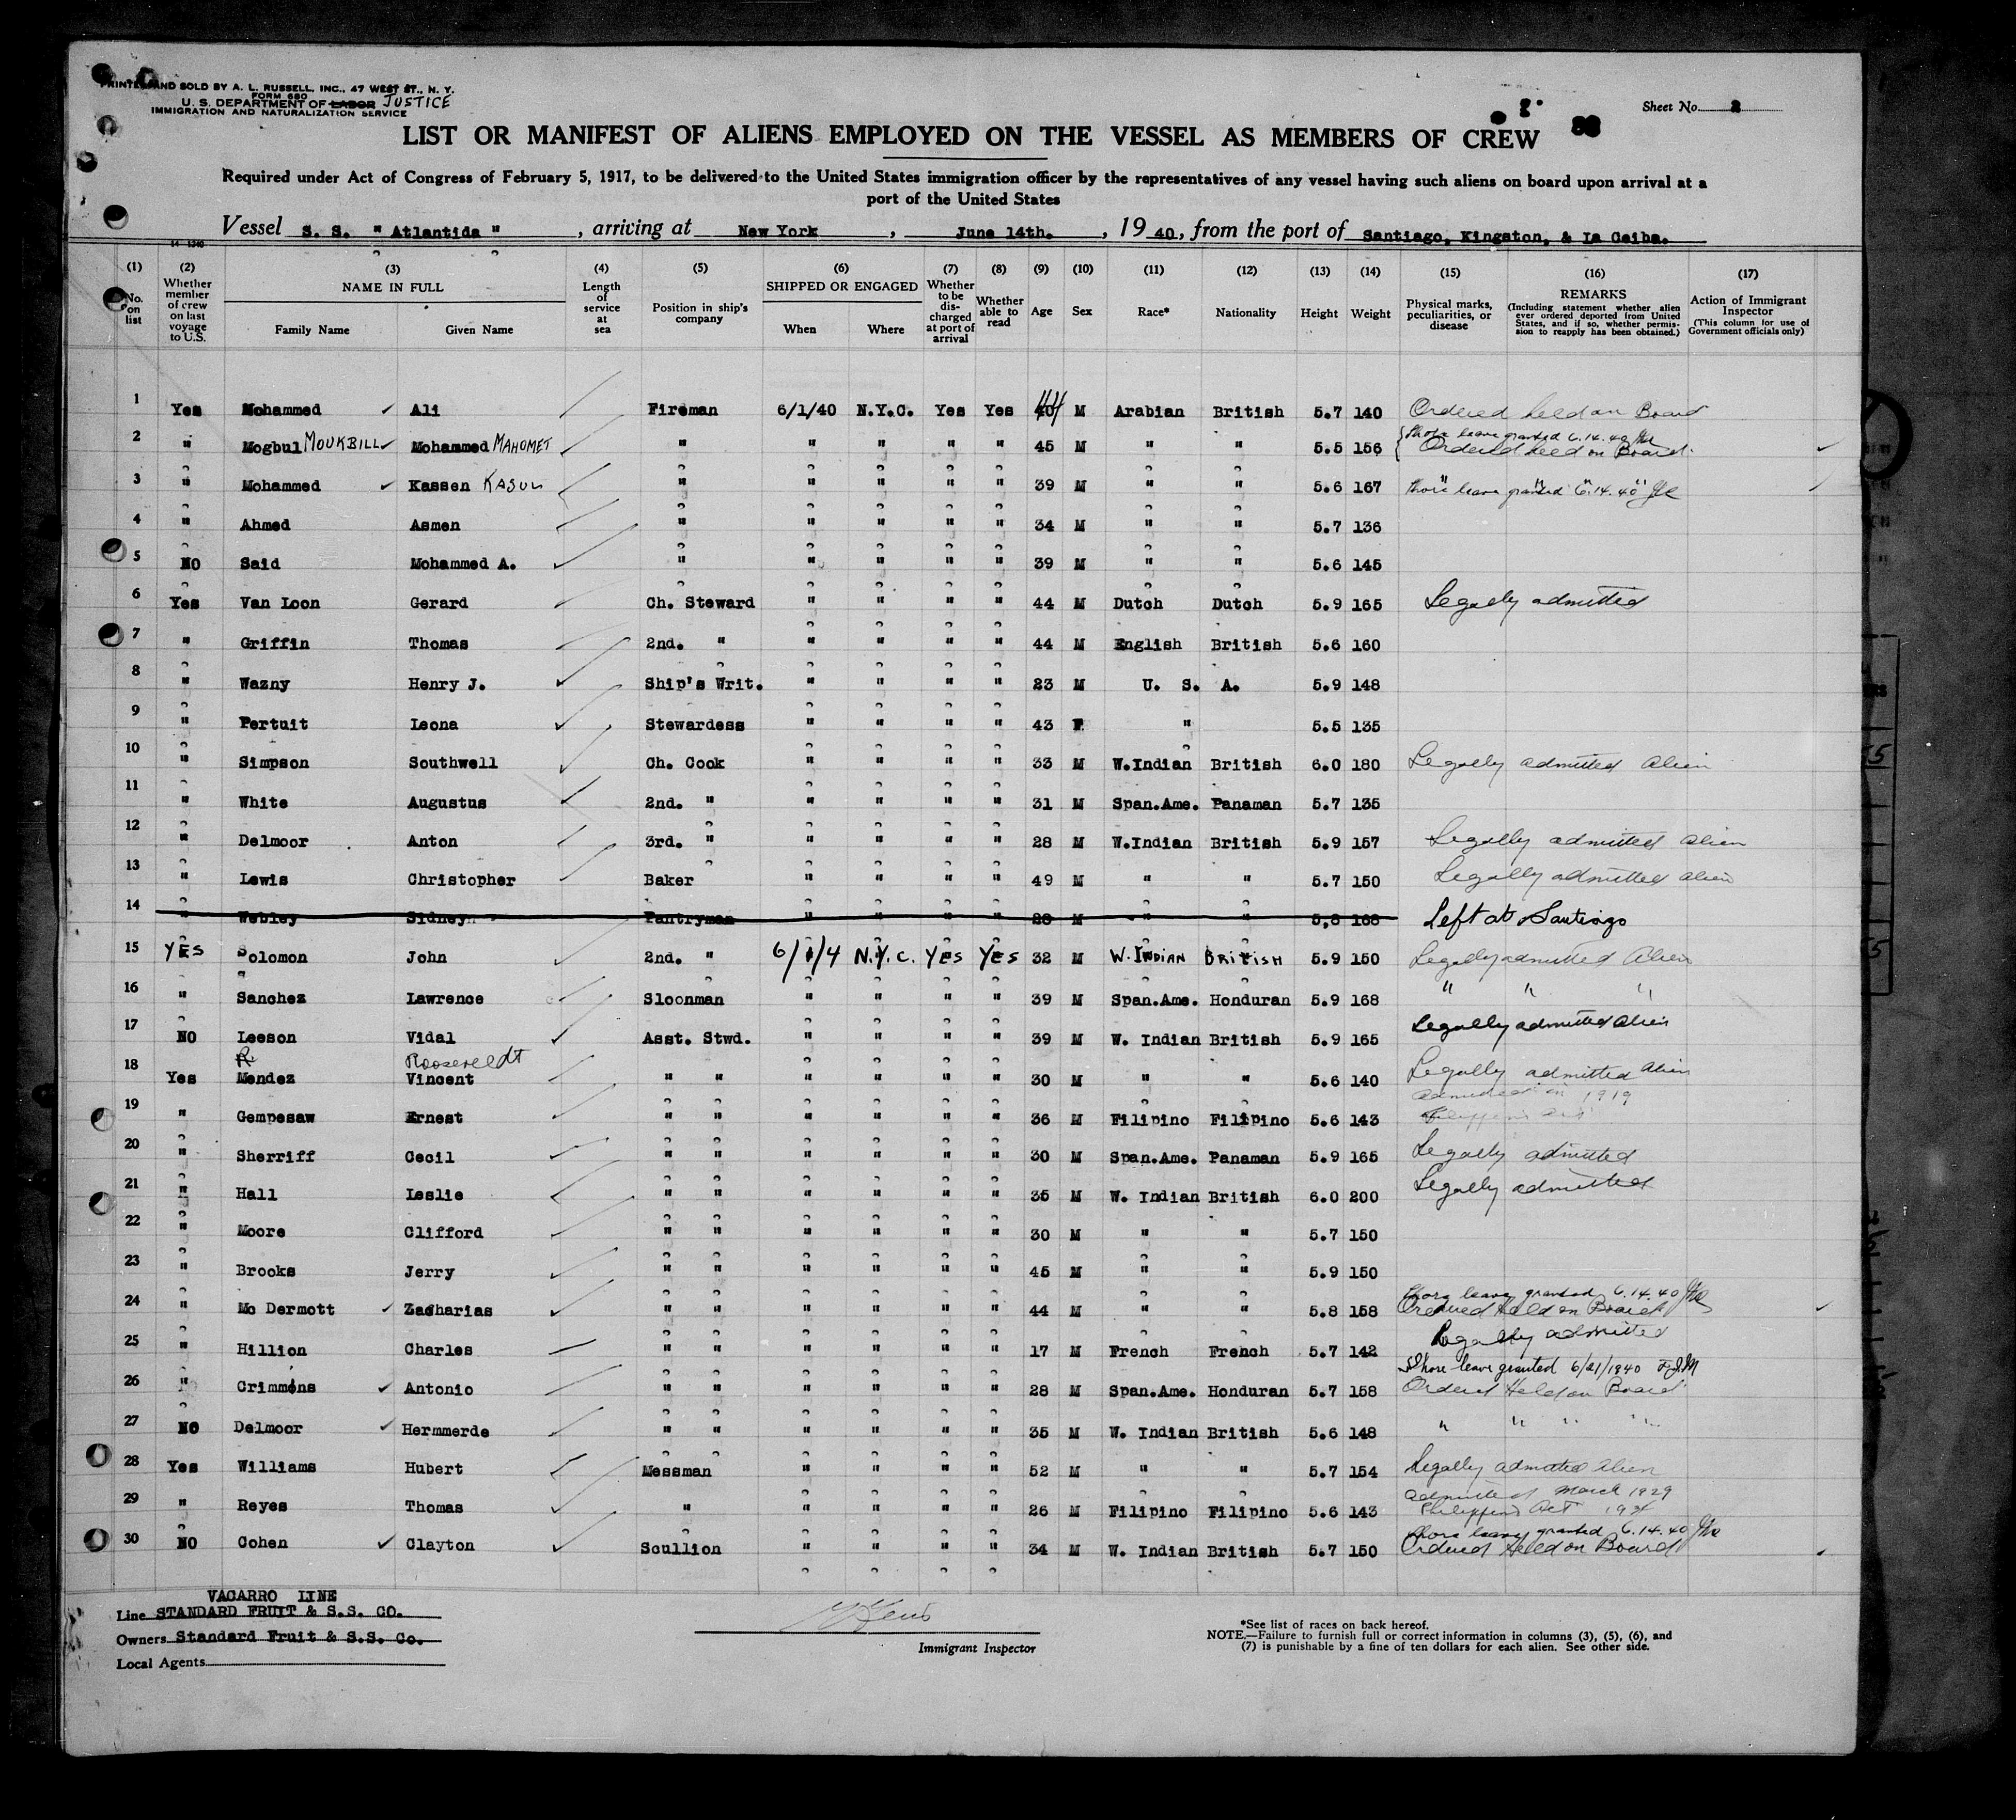 PRINTED AND SOLD BY A. L. RUSSELL, INC., 47 WEST ST., N. Y.
FORM 680
U. S. DEPARTMENT OF LABOR JUSTICE
IMMIGRATION AND NATURALIZATION SERVICE
Sheet No. 2
LIST OR MANIFEST OF ALIENS EMPLOYED ON THE VESSEL AS MEMBERS OF CREW
Required under Act of Congress of February 5, 1917, to be delivered to the United States immigration officer by the representatives of any vessel having such aliens on board upon arrival at a
port of the United States
Vessel S. S. " Atlantida " , arriving at New York , June 14th. , 19 40, from the port of Santiago, Kingston, & La Ceiba.
14—1240
(1) No. on list
(2) Whether member of crew on last voyage to U.S.
(3) NAME IN FULL Family Name Given Name
(4) Length of service at sea
(5) Position in ship's company
(6) SHIPPED OR ENGAGED When Where
(7) Whether to be discharged at port of arrival
(8) Whether able to read
(9) Age
(10) Sex
(11) Race*
(12) Nationality
(13) Height
(14) Weight
(15) Physical marks, peculiarities, or disease
(16) REMARKS (Including statement whether alien ever ordered deported from United States, and if so, whether permission to reapply has been obtained.)
(17) Action of Immigrant Inspector (This column for use of Government officials only)
1 Yes Mohammed Ali Fireman 6/1/40 N.Y.C. Yes Yes 40 44 M Arabian British 5.7 140 Ordered held on Board
2 " Mogbul MOUKBILL Mohammed MAHOMET " " " " " 45 M " " 5.5 156 Shore leave granted 6.14.40 Ordered held on Board.
3 " Mohammed Kassen KASUM " " " " " 39 M " " 5.6 167 " " " Shore leave granted 6.14.40
4 " Ahmed Asmen " " " " " 34 M " " 5.7 136
5 NO Said Mohammed A. " " " " " 39 M " " 5.6 145
6 Yes Van Loon Gerard Ch. Steward " " " " 44 M Dutch Dutch 5.9 165 Legally admitted
7 " Griffin Thomas 2nd. " " " " " 44 M English British 5.6 160
8 " Wazny Henry J. Ship's Writ. " " " " 23 M U. S. A. 5.9 148
9 " Pertuit Leona Stewardess " " " " 43 F " 5.5 135
10 " Simpson Southwell Ch. Cook " " " " 33 M W.Indian British 6.0 180 Legally admitted Alien
11 " White Augustus 2nd. " " " " " 31 M Span.Ame. Panaman 5.7 135
12 " Delmoor Anton 3rd. " " " " " 28 M W.Indian British 5.9 157 Legally admitted Alien
13 " Lewis Christopher Baker " " " " 49 M " " 5.7 150 Legally admitted Alien
14 " Webley Sidney Pantryman " " " " 28 M " " 5,8 168 Left at Santiago
15 YES Solomon John 2nd. " 6/1/4 N.Y.C. YES YES 32 M W. INDIAN BRITISH 5.9 150 Legally admitted Alien
16 " Sanchez Lawrence Sloonman " " " " 39 M Span.Ame. Honduran 5.9 168 " " "
17 NO Leeson Vidal Asst. Stwd. " " " " 39 M W. Indian British 5.9 165 Legally admitted Alien
R Roosereldt
18 Yes Mendez Vincent " " " " " " 30 M " " 5.6 140 Legally admitted Alien
19 " Gempesaw Ernest " " " " " " 36 M Filipino Filipino 5.6 143 Admitted in 1919
20 " Sherriff Cecil " " " " " " 30 M Span.Ame. Panaman 5.9 165 Legally admitted
21 " Hall Leslie " " " " " " 35 M W. Indian British 6.0 200 Legally admitted
22 " Moore Clifford " " " " " " 30 M " " 5.7 150
23 " Brooks Jerry " " " " " " 45 M " " 5.9 150
24 " Mc Dermott Zacharias " " " " " " 44 M " " 5.8 158 Shore leave granted 6.14.40 Ordered Held on Board
25 " Hillion Charles " " " " " " 17 M French French 5.7 142 Legally admitted
26 " Crimmens Antonio " " " " " " 28 M Span.Ame. Honduran 5.7 158 Shore leave granted 6/21/1940 Ordered Held on Board
27 NO Delmoor Hermmerde " " " " " " 35 M W. Indian British 5.6 148 " " " "
28 Yes Williams Hubert Messman " " " " 52 M " " 5.7 154 Legally admitted Alien
29 " Reyes Thomas " " " " " 26 M Filipino Filipino 5.6 143 Admitted March 1929 Act
30 NO Cohen Clayton Scullion " " " " 34 M W. Indian British 5.7 150 Shore leave granted 6.14.40 Ordered Held on Board
VACARRO LINE
Line STANDARD FRUIT & S.S. CO.
Owners Standard Fruit & S.S. Co.
Local Agents
Immigrant Inspector
*See list of races on back hereof.
NOTE.—Failure to furnish full or correct information in columns (3), (5), (6), and
(7) is punishable by a fine of ten dollars for each alien. See other side.